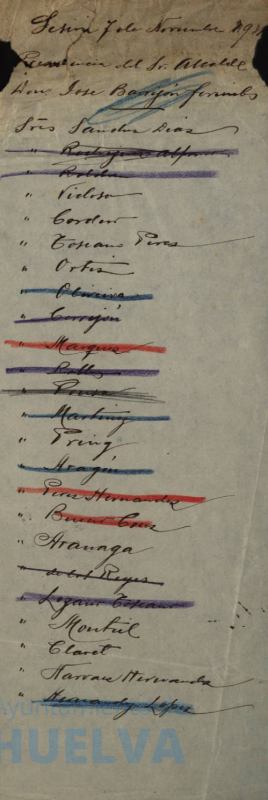 Sesion 7 de Noviembre 193
Presidencia del Sr. Alcalde
Don Jose Barrejón
Sres Sanchez Diaz
" Rodrigo Alfonso
" Roldán
" Vidosa
" Cordero
" Toscano Perez
" Ortiz
" Oliveira
" Correjón
" Marquez
" Robles
" Ponce
" Martin
" Pring
" Aragón
" Perez Hernandez
" Bueno Cruz
" Aranaga
" de los Reyes
" Lozano Toscano
" Montiel
" Claret
" Narvaez Hernandez
" Hernandez Lopez
Ayuntamiento
HUELVA